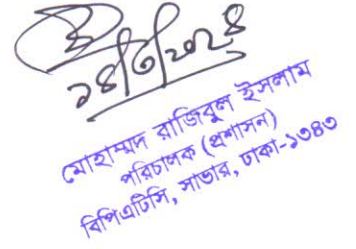 ১৪/৩/২০২৪
মোহাম্মদ রাজিবুল ইসলাম
পরিচালক (প্রশাসন)
বিপিএটিসি, সাভার, ঢাকা-১৩৪৩